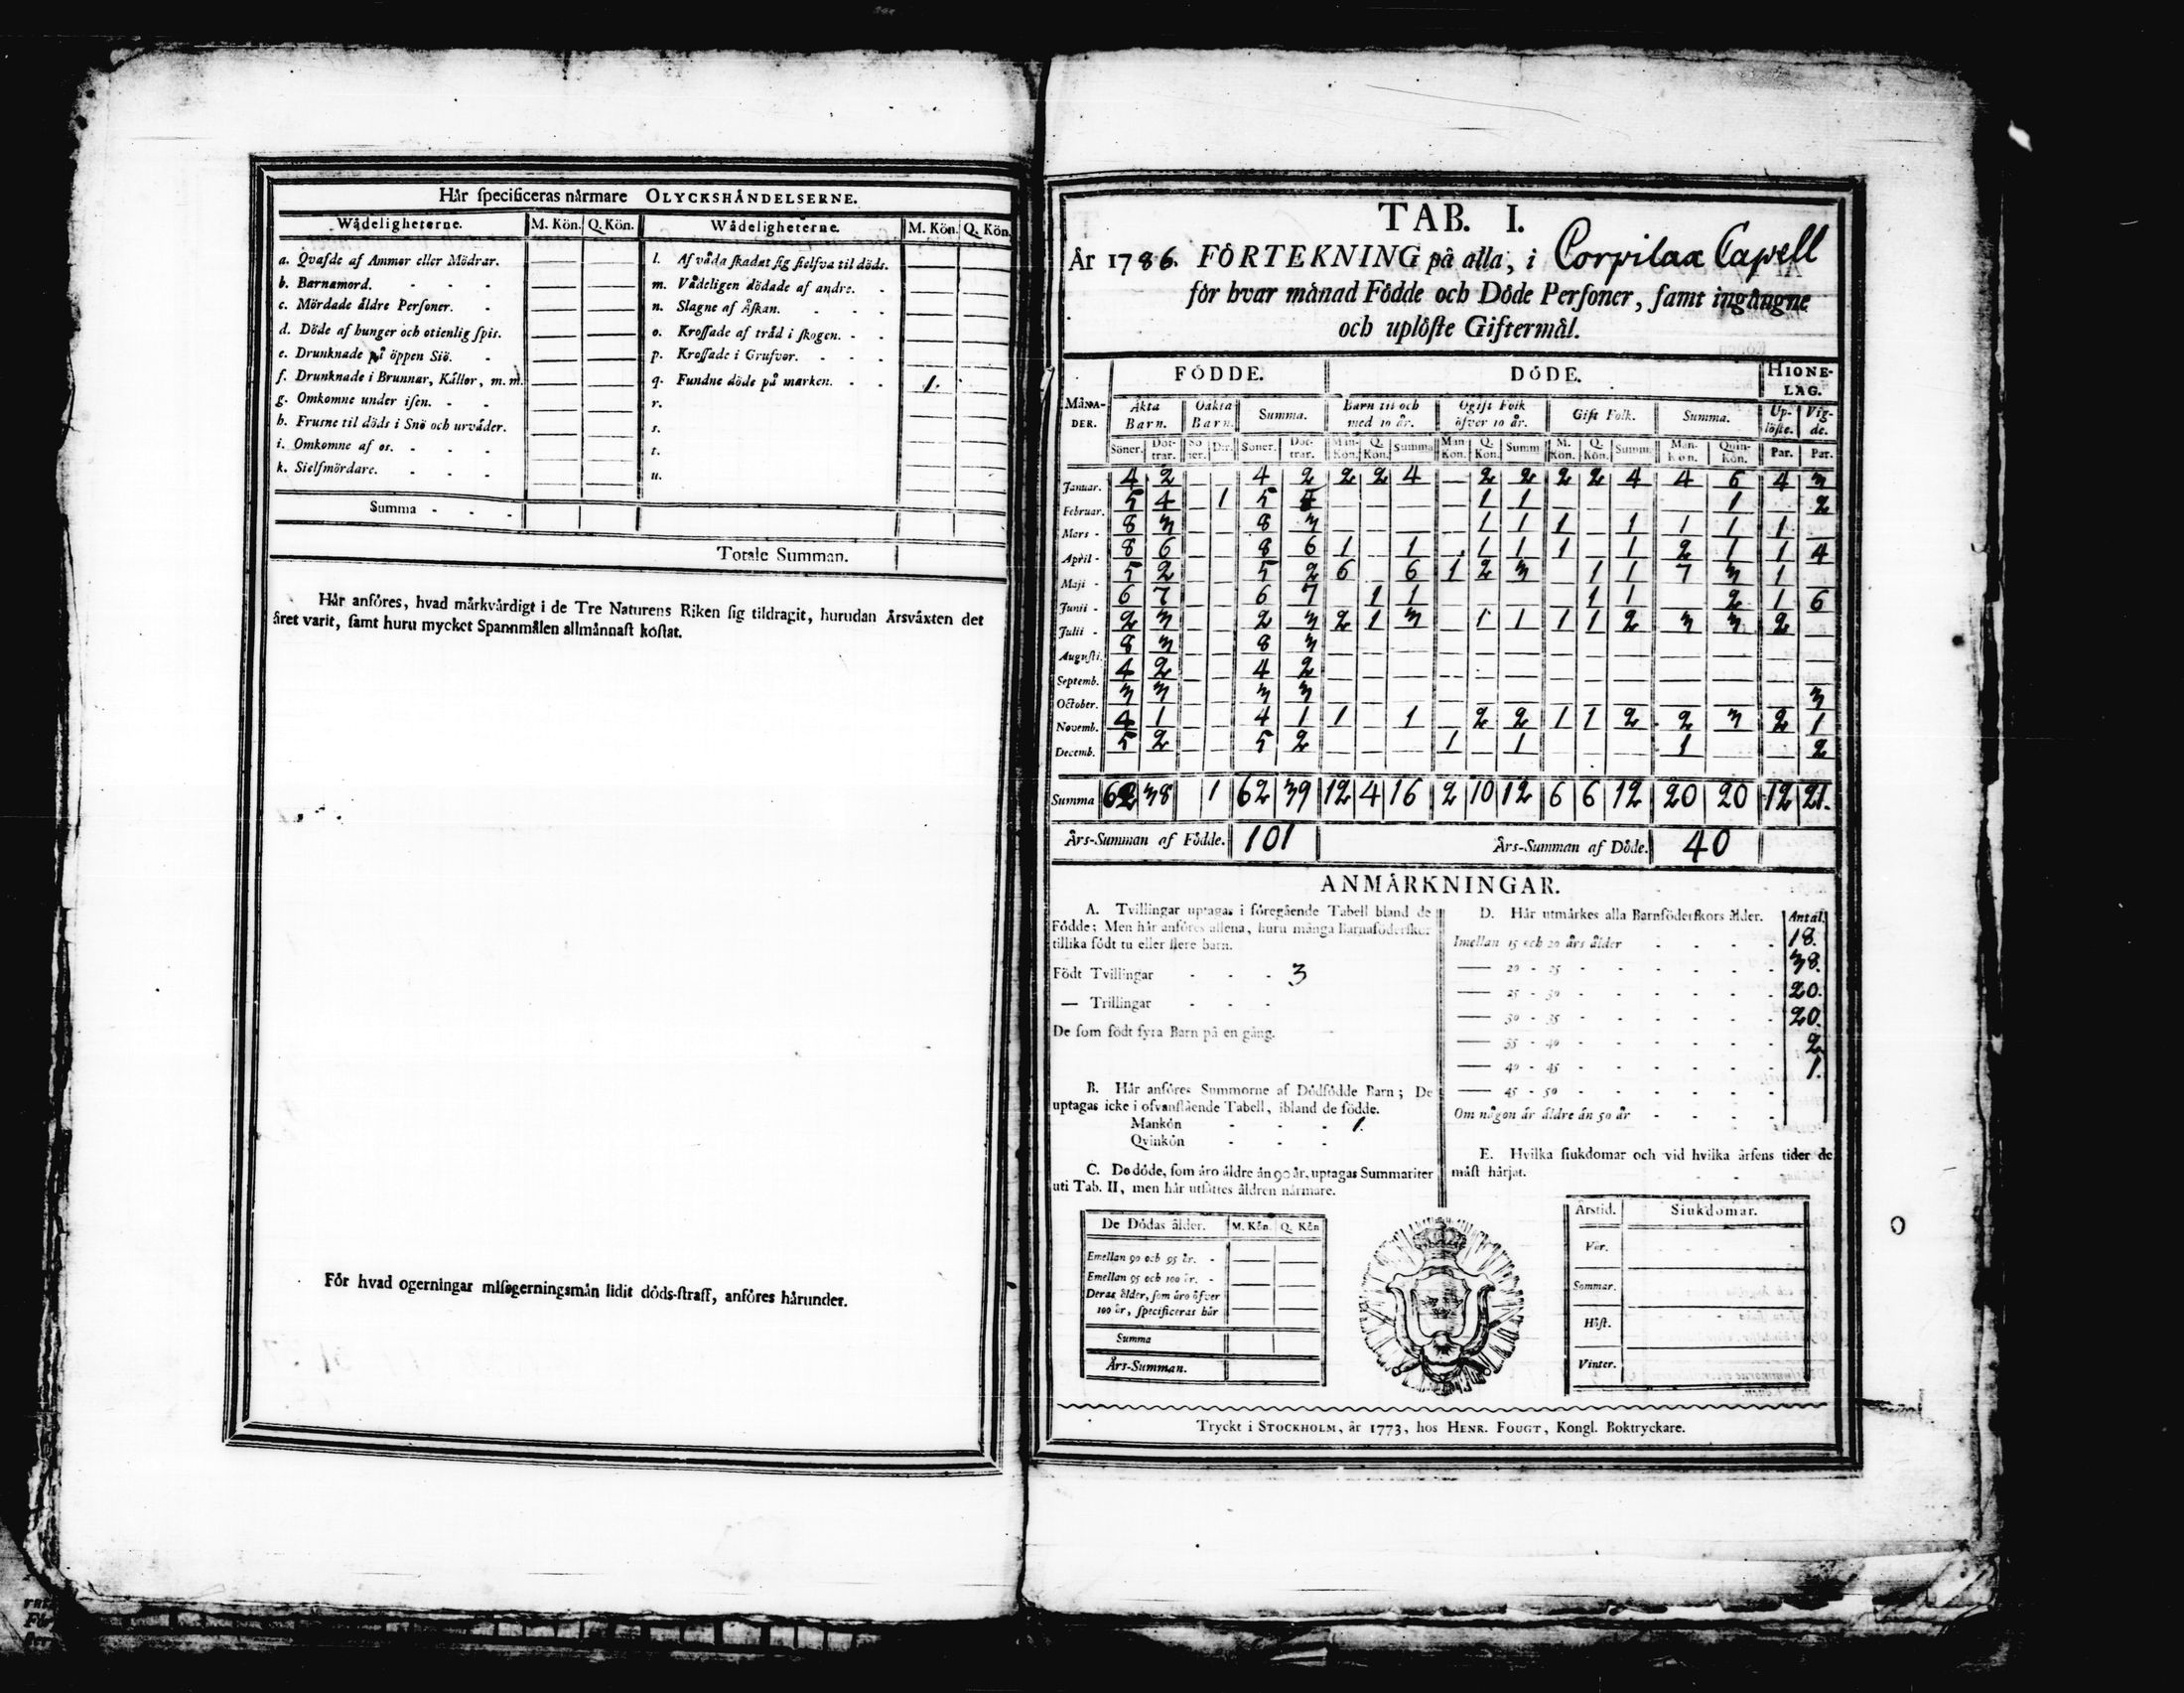 Hår specificeras nårmare OLYCKSHÅNDELSERNE.
Wådeligheterne. M. Kön. Q. Kön. Wådeligheterne. M. Kön. Q. Kön.
a. Qvafde af Ammor eller Mödrar. — — l. Af våda skadat sig sielfva til döds. — —
b. Barnamord. - - - — — m. Vådeligen dödade af andre. - — —
c. Mördade åldre Personer. - — — n. Slagne af Åskan. - - - — —
d. Döde af hunger och otienlig spis. — — o. Krossade af tråd i skogen. - - — —
e. Drunknade på öppen Siö. - — — p. Krossade i Grufvor. - - - — —
f. Drunknade i Brunnar, Kållor, m. m. — — q. Fundne döde på marken. - - 1.
g. Omkomne under isen. - - — — r. — —
h. Frusne til döds i Snö och urvåder. — — s. — —
i. Omkomne af os. - - - — — t. — —
k. Sielfmördare. - - - — — u. — —
Summa - - -
Totale Summan.
Hår anföres, hvad mårkvårdigt i de Tre Naturens Riken sig tildragit, hurudan Årsvåxten det
året varit, samt huru mycket Spannmålen allmånnast kostat.
För hvad ogerningar missgerningsmån lidit döds-straff, anföres hårunder.
TAB. I.
År 1786. FÖRTEKNING på alla, i Corpilax Capell
för hvar månad Födde och Döde Personer, samt ingångne
och uplöste Giftermål.
FÖDDE. DÖDE. HIONE-
LAG.
MÅNA-
DER. Åkta
Barn. Oåkta
Barn. Summa. Barn til och
med 10 år. Ogift Folk
öfver 10 år. Gift Folk. Summa. Up-
löste. Vig-
de.
Söner. Döt-
trar. Sö
ner. Dr. Söner. Döt-
trar. Man-
Kön. Q.
Kön. Summa Man
Kön. Q.
Kön. Summ M.
Kön. Q.
Kön. Summ. Man-
Kön. Quin-
kön. Par. Par.
Januar. 4 2 — — 4 2 2 2 4 — 2 2 2 2 4 4 6 4 3
Februar. 5 4 — 1 5 — — — — 1 1 — — — — 1 — 2
Mars - 8 3 — — 8 3 — — — — 1 1 1 — 1 1 1 1
April - 8 6 — — 8 6 1 — 1 — 1 1 1 — 1 2 1 1 4
Maji - 5 2 — — 5 2 6 — 6 1 2 3 — 1 1 7 3 1
Junii - 6 7 — — 6 7 — 1 1 — — — — 1 1 — 2 1 6
Julii - 2 3 — — 2 3 2 1 3 — 1 1 1 1 2 3 3 2 —
Augusti. 8 3 — — 8 3 — — — — — — — — — — — — —
Septemb. 4 2 — — 4 2 — — — — — — — — — — — — —
October. 3 3 — — 3 3 — — — — — — — — — — — — 3
Novemb. 4 1 — — 4 1 1 — 1 — 2 2 1 1 2 2 3 2 1
Decemb. 5 2 — — 5 2 — — — 1 — 1 — — — 1 — — 2
Summa 62 38 1 62 39 12 4 16 2 10 12 6 6 12 20 20 12 21.
Års-Summan af Födde. 101 Års-Summan af Döde. 40
ANMÅRKNINGAR.
A. Tvillingar uptagas i föregående Tabell bland de
Födde; Men hår anföres allena, huru många Barnaföderskor
tillika födt tu eller flere barn.
Födt Tvillingar - - - 3
— Trillingar - - -
De som födt fyra Barn på en gång.
B. Hår anföres Summorne af Dödfödde Barn; De
uptagas icke i ofvanstående Tabell, ibland de födde.
Mankön - - - 1.
Qvinkön - - -
C. De döde, som åro åldre ån 90 år, uptagas Summariter
uti Tab. II, men hår utsåttes åldren nårmare.
De Dödas ålder. M. Kön. Q. Kön
Emellan 90 och 95 år. - — —
Emellan 95 och 100 år. - — —
Deras ålder, som åro öfver
100 år, specificeras hår — —
Summa
Års-Summan.
D. Hår utmårkes alla Barnföderskors ålder. Antal.
Imellan 15 och 20 års ålder - - - - 18.
— 20 - 25 - - - - - - 38.
— 25 - 30 - - - - - - 20.
— 30 - 35 - - - - - - 20.
— 35 - 40 - - - - - - 2
— 40 - 45 - - - - - - 1.
— 45 - 50 - - - - - -
Om någon år åldre ån 50 år - - - -
E. Hvilka siukdomar och vid hvilka årsens tider de
måst hårjat.
Årstid. Siukdomar.
Vår.
Sommar.
Höst.
Vinter.
Tryckt i STOCKHOLM, år 1773, hos HENR. FOUGT, Kongl. Boktryckare.